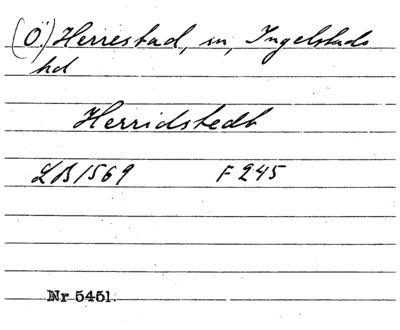 (Ö.) Herrestad, sn, Ingelstads
hd
Herridstedt
LB 1569 F 245
Nr 5451.